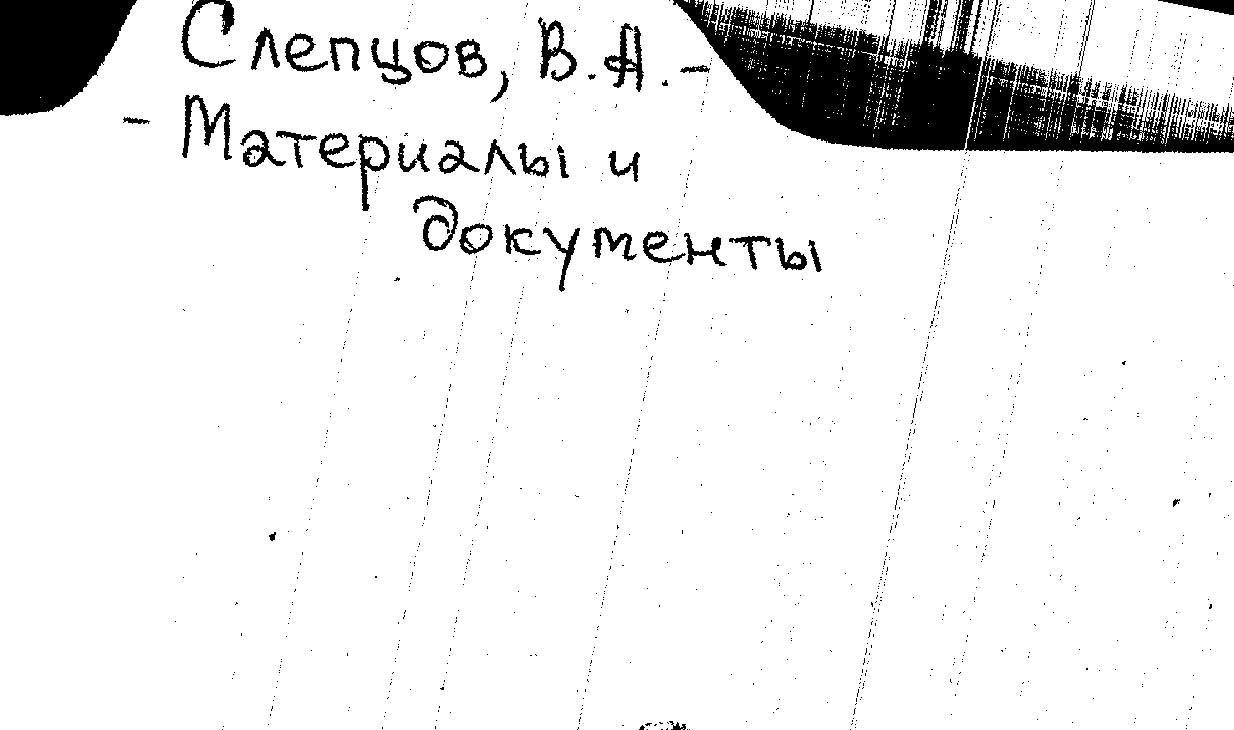 Слепцов, В.А.-
- Материалы и
документы